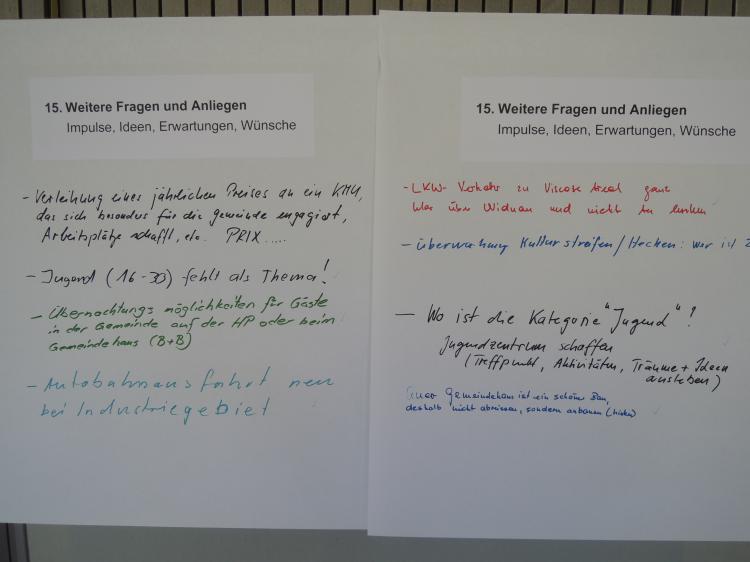 15. Weitere Fragen und Anliegen
Impulse, Ideen, Erwartungen, Wünsche
- Verleihung eines jährlichen Preises an ein KMU,
das sich besonders für die Gemeinde engagiert,
Arbeitsplätze schafft, etc. PRIX.....
- Jugend (16-30) fehlt als Thema!
- Übernachtungsmöglichkeiten für Gäste
in der Gemeinde auf der HP oder beim
Gemeindehaus (B+B)
- Autobahnausfahrt neu
bei Industriegebiet
15. Weitere Fragen und Anliegen
Impulse, Ideen, Erwartungen, Wünsche
- LKW-Verkehr zu Viscose Areal ganz
klar über Widnau und nicht
- Überwachung Kulturstreifen/Hecken: wer ist
- Wo ist die Kategorie "Jugend"?
Jugendzentrum schaffen
(Treffpunkt, Aktivitäten, Träume + Ideen
ausleben)
Gemeindehaus ist ein schöner Bau,
deshalb nicht abreissen, sondern anbauen (hinten)